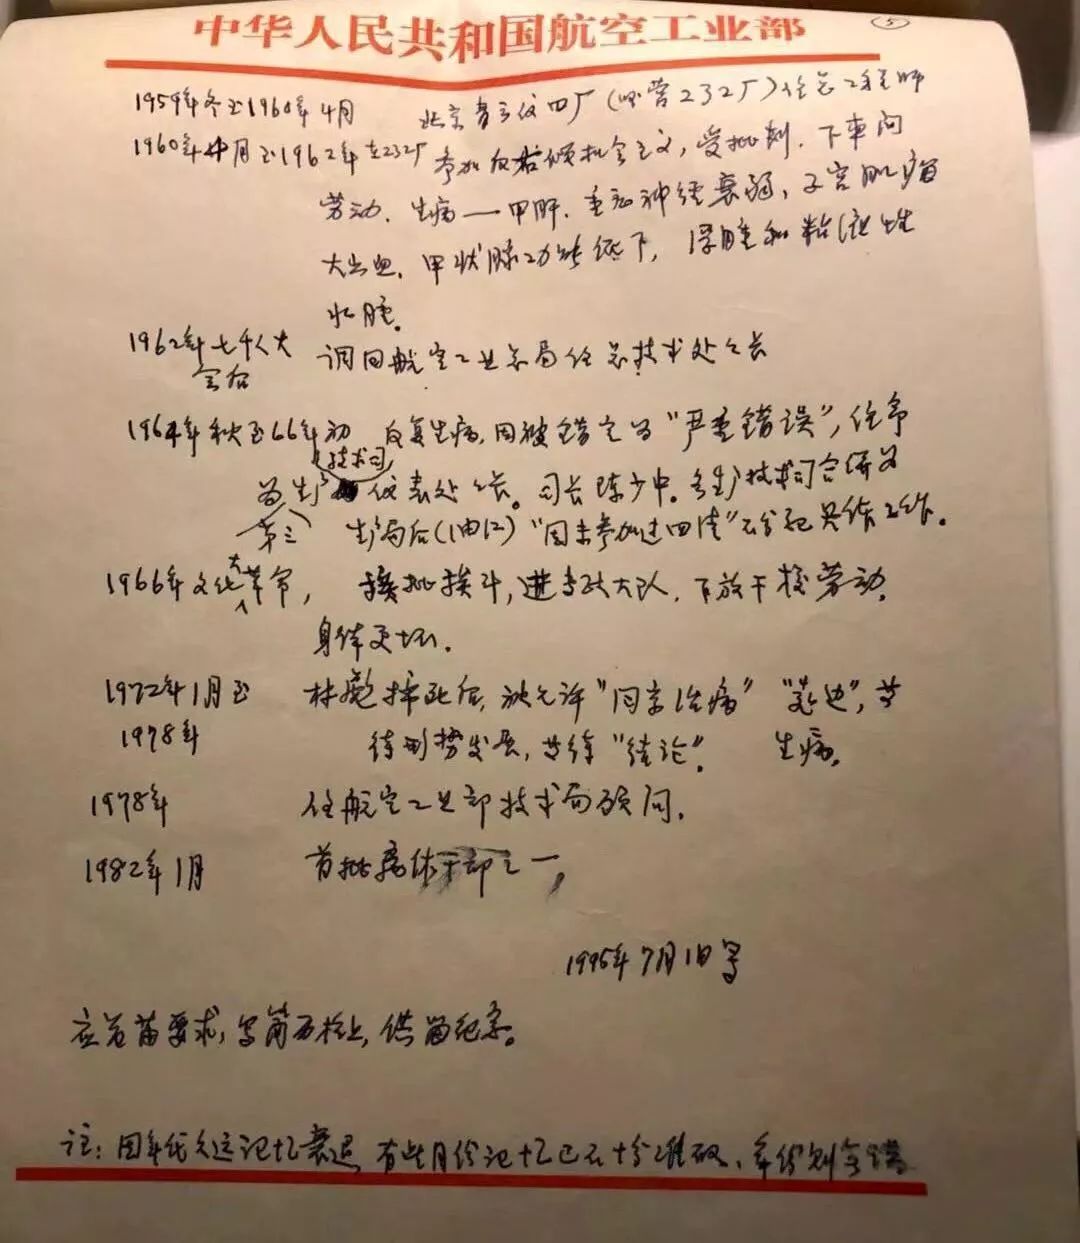 中华人民共和国航空工业部 ⑤
1959年冬至1960年4月 北京青云仪四厂(232厂)任总工程师
1960年4月至1962年在232厂 参加反右倾机会主义,受批判.下车间
劳动.生病——甲肝.重度神经衰弱,子宫肌瘤
大出血.甲状腺功能低下,浮肿和粘液性
水肿。
1962年七千人大会后 调回航空工业总局任总技术处处长
1964年秋至66年初 反复生病,因被错定为"严重错误",任命
为生产(技术司)仪表处处长。司长陈少中。生产技术司合併为
第三生产局后 "因未参加过四清"不分配具体工作。
1966年文化大革命, 挨批挨斗,进专政大队.下放干校劳动.
身体更坏.
1972年1月至1978年 林彪摔死后,被允许"回京治病" "靠边",等
待形势发展,等待"结论". 生病.
1978年 任航空工业部技术局顾问.
1982年1月 首批离休干部之一,
1995年7月1日写
应苗要求,写简历, 供留纪念。
注:因年代久远记忆衰退 有些月份记忆已不十分准确、年份则